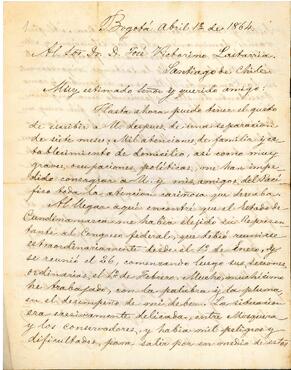 Bogotá Abril 1º de 1864.
Al Sor. Dr. D. José Victorino Lastarria
Santiago de Chile.
Muy estimado señor y querido amigo:
Hasta ahora puedo tener el gusto
de escribir a U. despues de una separacion
de siete meses. Mil atenciones de familia y es-
tablecimiento de domicilio, así como muy
graves ocupaciones políticas, me han impe-
dido consagrar a U. y mis amigos del Pací-
fico toda la atencion asidua que deseaba.
Al llegar aquí encontré que el Estado de
Cundinamarca me habia elejido su Represen-
tante al Congreso federal, que debió reunirse
extraordinariamente desde el 1º de Enero, y
se reunió el 26, comenzando luego sus sesiones
ordinarias, el 1º de Febrero. Mucho, muchísimo
he trabajado, con la palabra i la pluma
en el desempeño de mi deber. La situacion
era excesivamente delicada, entre Mosquera
y los conservadores, y habia mil peligros y
dificultades, para salir por en medio de estos